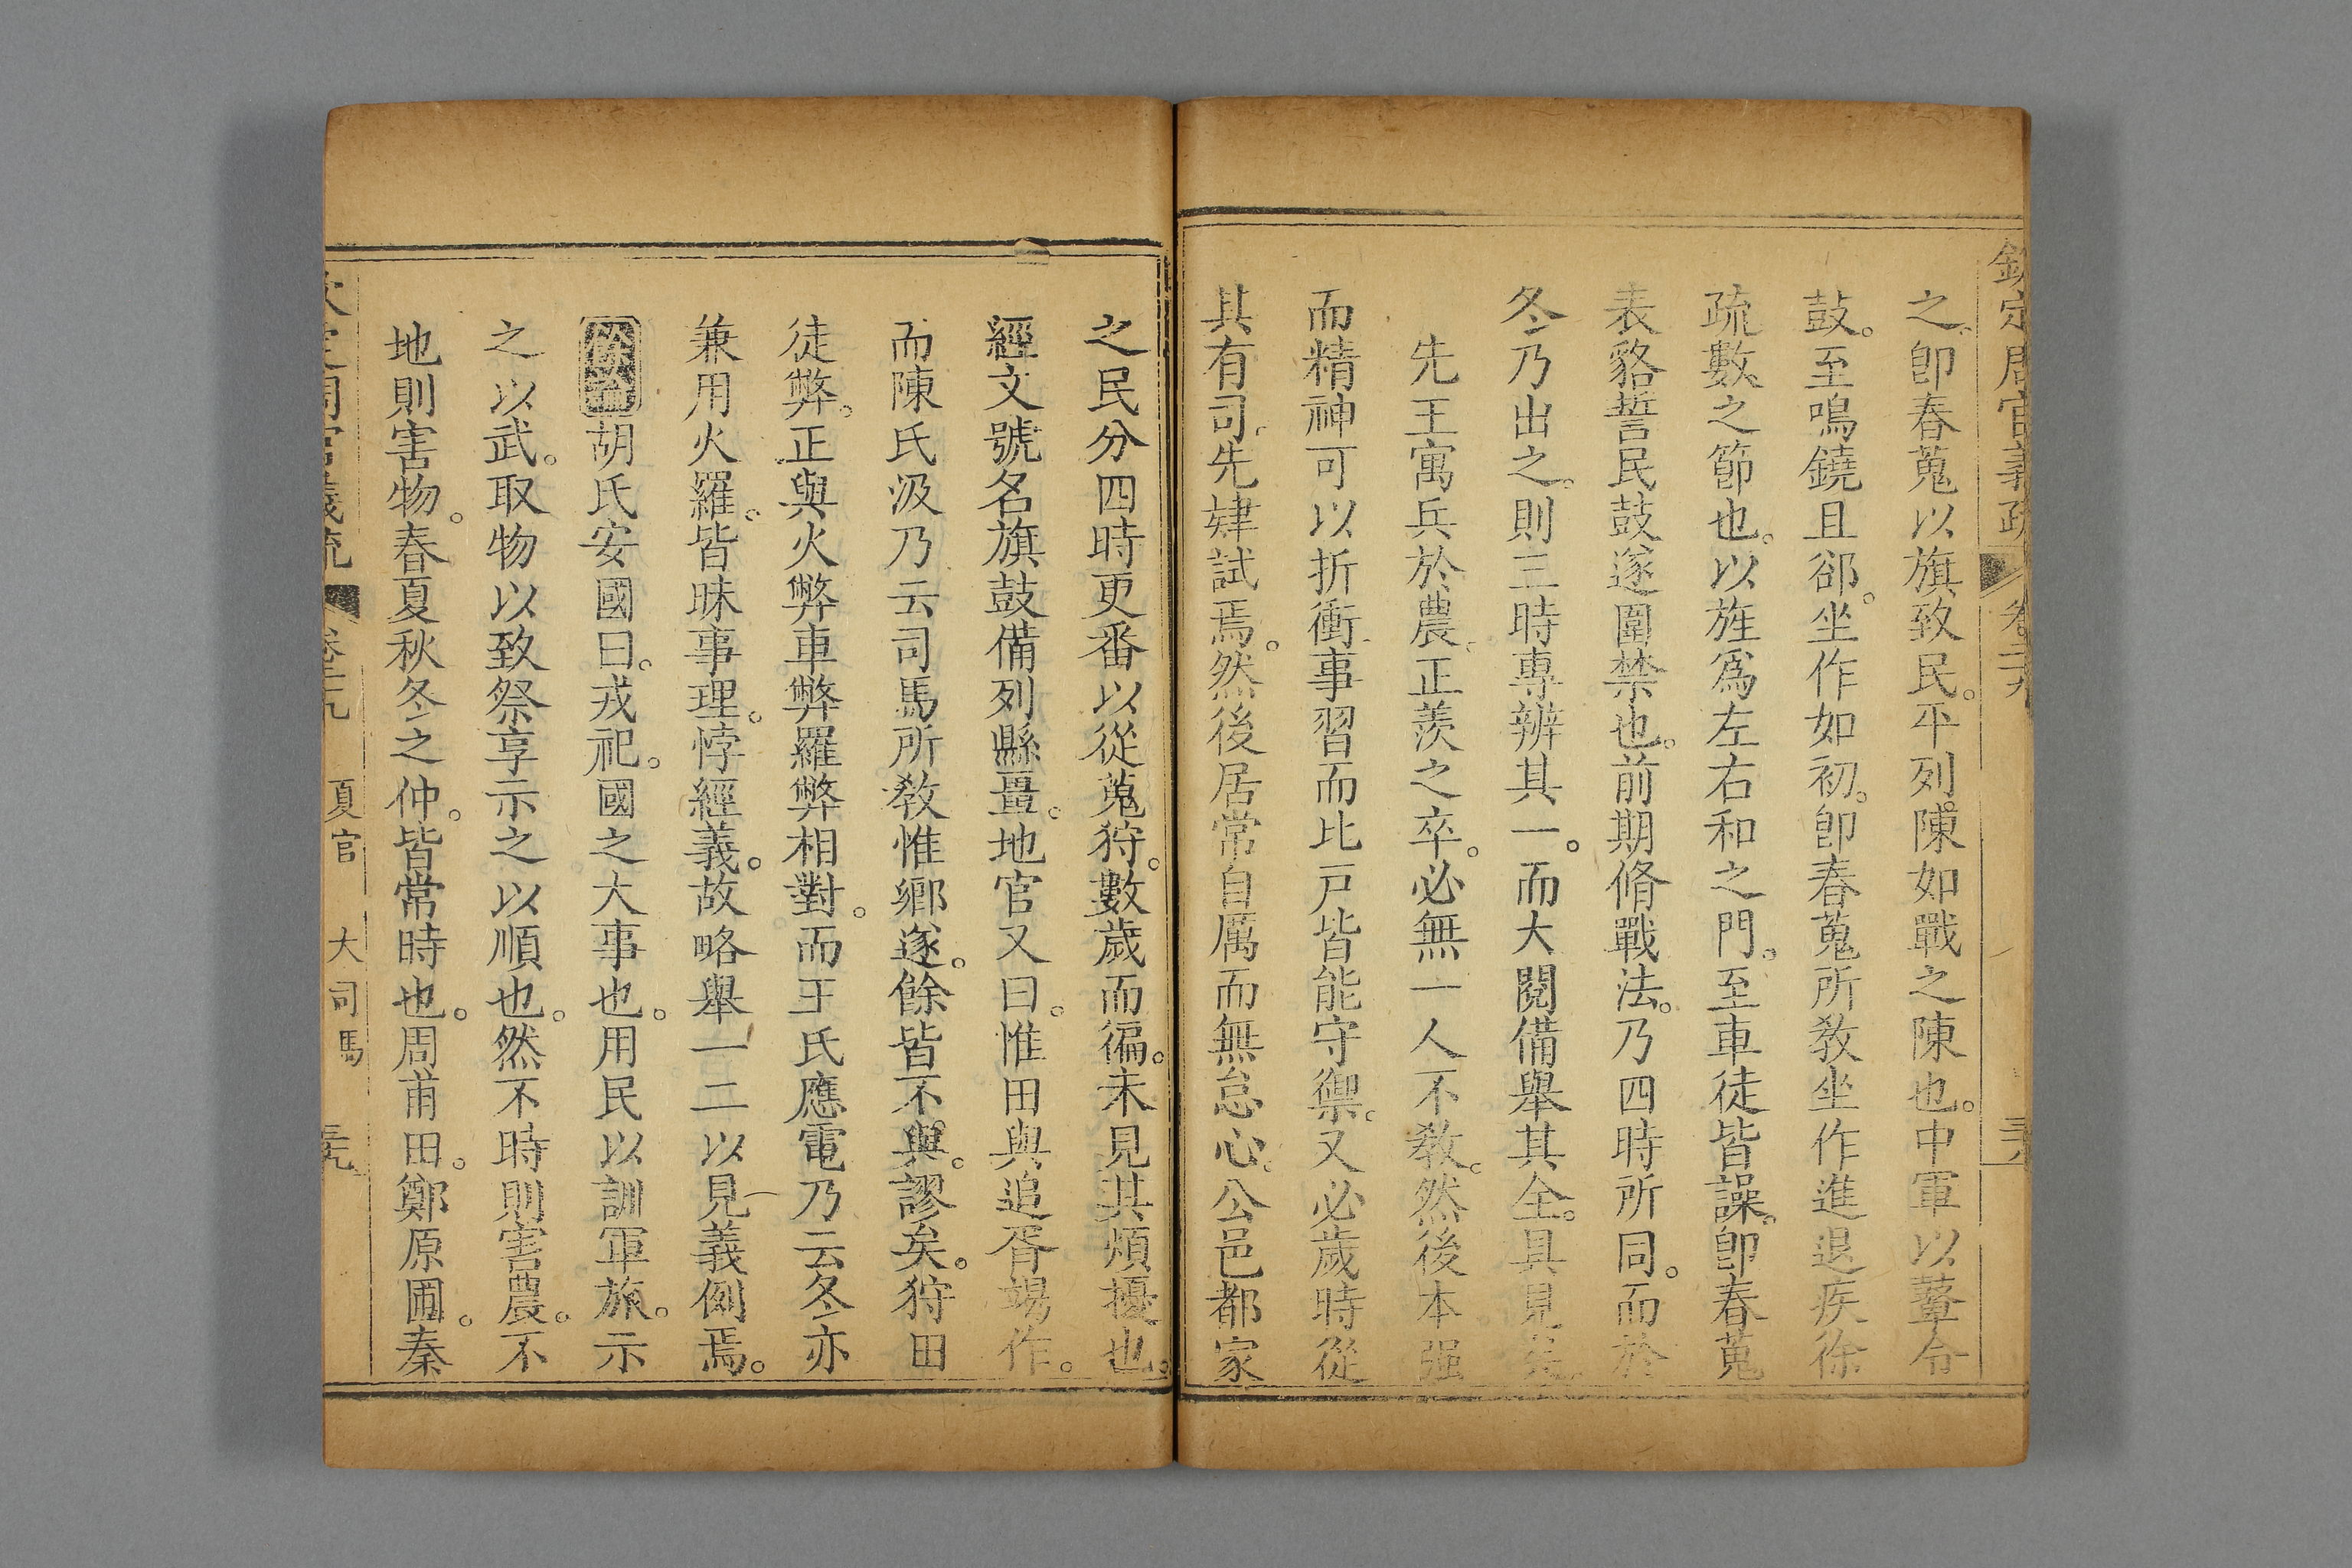 欽定周官義疏 卷二十九
之。卽春蒐以旗致民。平列陳如戰之陳也。中軍以鼙令
鼓。至鳴鐃且卻。坐作如初。卽春蒐所教坐作進退疾徐
疏數之節也。以旌爲左右和之門。至車徒皆譟。卽春蒐
表貉誓民鼓遂圍禁也。前期脩戰法。乃四時所同。而於
冬乃出之。則三時專辨其一。而大閱備舉其全。具見矣
先王寓兵於農。正羨之卒。必無一人不教。然後本强
而精神可以折衝。事習而比戶皆能守禦。又必歲時從
其有司。先肄試焉。然後居常自厲而無怠心。公邑都家
之民分四時更番以從蒐狩。數歲而徧。未見其煩擾也。
經文號名旗鼓備列縣畺。地官又曰。惟田與追胥竭作。
而陳氏汲乃云司馬所教惟鄉遂。餘皆不與。謬矣。狩田
徒弊。正與火弊車弊羅弊相對。而王氏應電乃云冬亦
兼用火羅。皆昧事理。悖經義。故略舉一二以見義例焉。
胡氏安國曰。戎祀。國之大事也。用民以訓軍旅。示
之以武。取物以致祭享示之以順也。然不時則害農。不
地則害物。春夏秋冬之仲。皆常時也。周甫田。鄭原圃。秦
欽定周官義疏 卷二十九 夏官 大司馬 三九